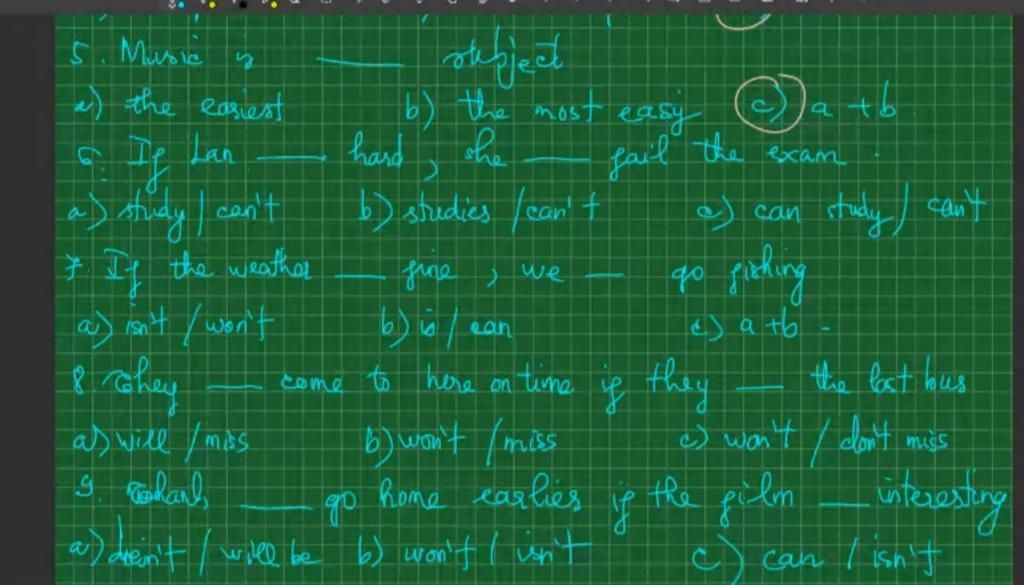 5. Music is ____ subject
a) the easiest b) the most easy c) a + b
6. If Lan ____ hard, she ____ fail the exam.
a) study / can't b) studies / can't c) can study / can't
7. If the weather ____ fine, we ____ go fishing
a) isn't / won't b) is / can c) a + b -
8. They ____ come to here on time if they ____ the last bus
a) will / miss b) won't / miss c) won't / don't miss
9. ____ go home earlier if the film ____ interesting
a) / will be b) won't / isn't c) can / isn't